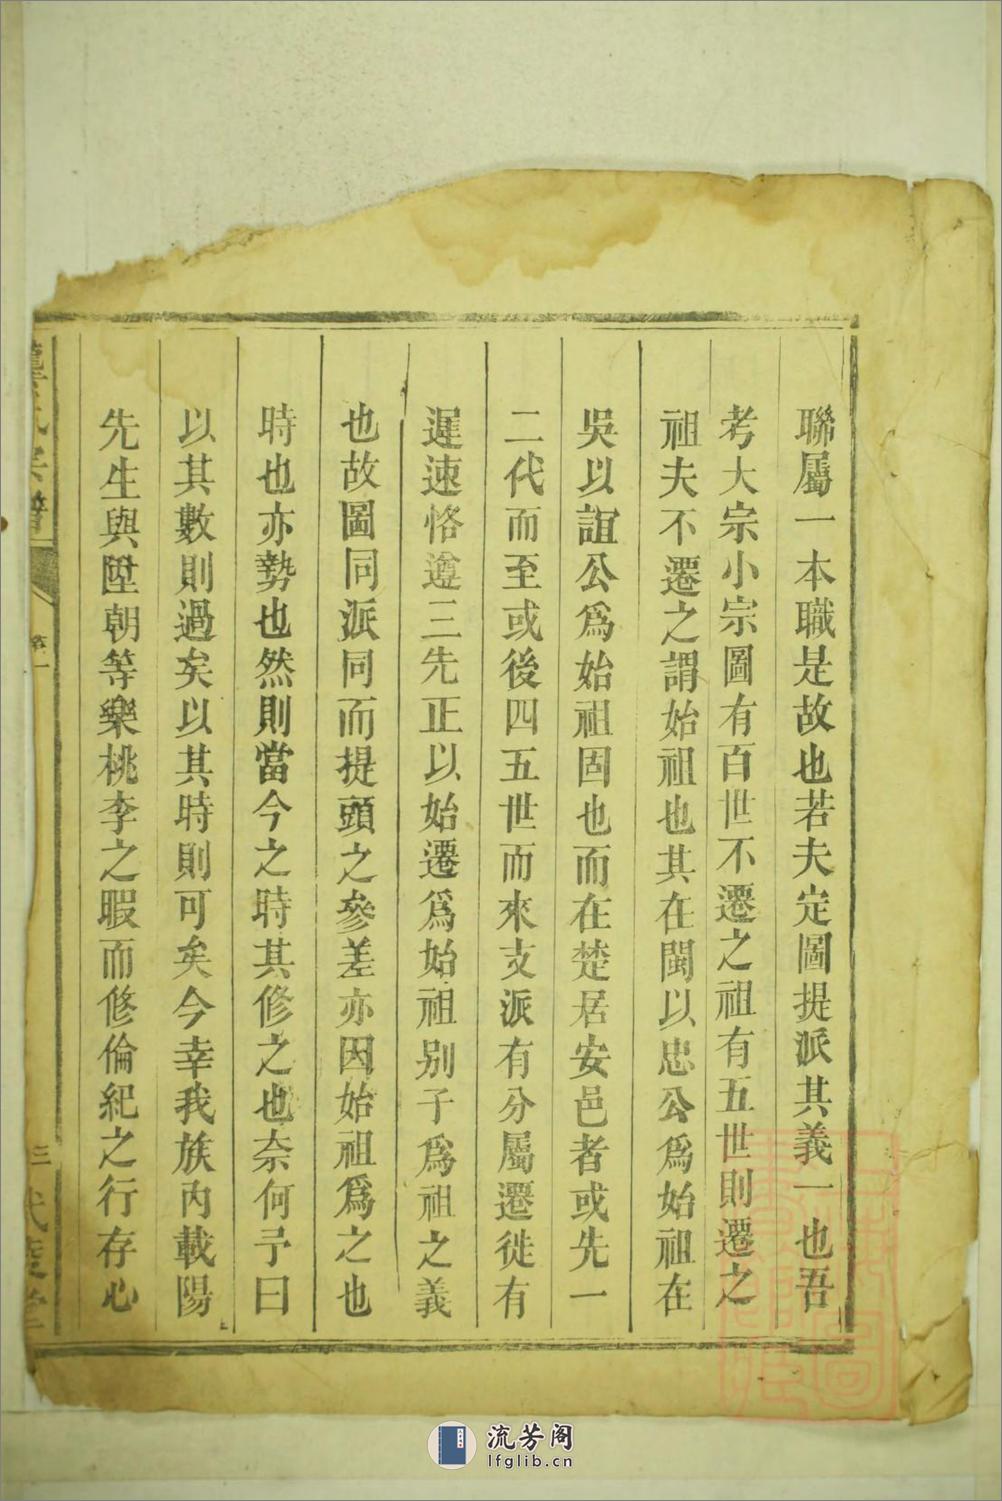 聯屬一本職是故也若夫定圖提派其義一也吾
考大宗小宗圖有百世不遷之祖有五世則遷之
祖夫不遷之謂始祖也其在閩以忠公爲始祖在
吳以誼公爲始祖固也而在楚居安邑者或先一
二代而至或後四五世而來支派有分屬遷徙有
遲速恪遵三先正以始遷爲始祖别子爲祖之義
也故圖同派同而提頭之參差亦因始祖爲之也
時也亦勢也然則當今之時其修之也奈何予曰
以其數則過矣以其時則可矣今幸我族內載陽
先生與陞朝等樂桃李之暇而修倫紀之行存心
氏宗譜
三
流芳阁
lfglib.cn